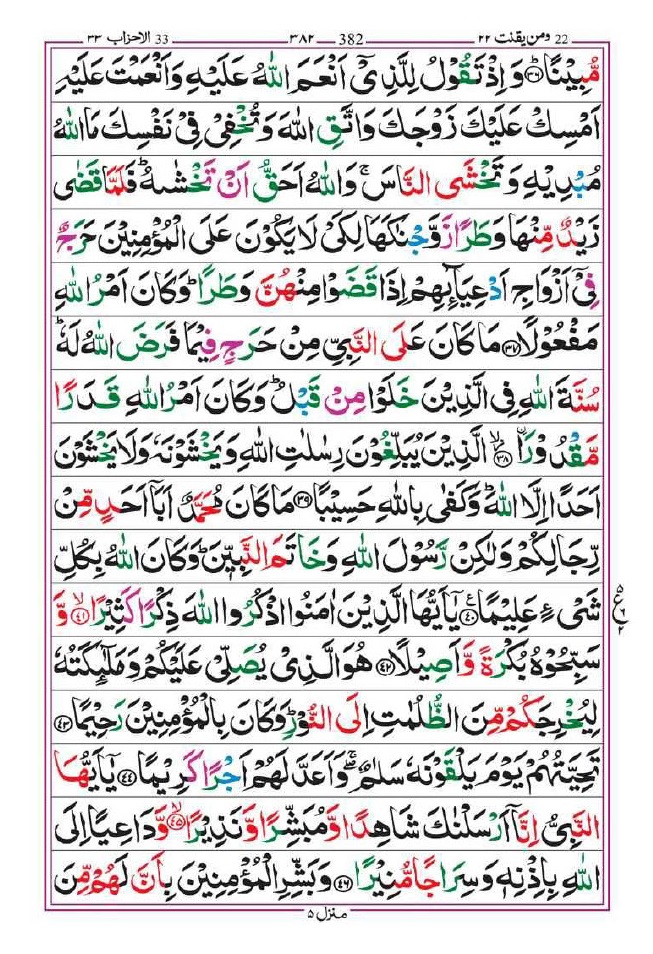 22 ومن يقنت ٢٢ 382 ٣٨٢ 33 الاحزاب ٣٣
مُّبِيْنًا ؕ‏﴿۳۶﴾ وَ اِذْ تَقُوْلُ لِلَّذِىْۤ اَنْعَمَ اللّٰهُ عَلَيْهِ وَاَنْعَمْتَ عَلَيْهِ
اَمْسِكْ عَلَيْكَ زَوْجَكَ وَاتَّقِ اللّٰهَ وَتُخْفِىْ فِىْ نَفْسِكَ مَا اللّٰهُ
مُبْدِيْهِ وَتَخْشَى النَّاسَ ۚ وَاللّٰهُ اَحَقُّ اَنْ تَخْشٰٮهُ ؕ فَلَمَّا قَضٰى
زَيْدٌ مِّنْهَا وَطَرًا زَوَّجْنٰكَهَا لِكَىْ لَا يَكُوْنَ عَلَى الْمُؤْمِنِيْنَ حَرَجٌ
فِىْۤ اَزْوَاجِ اَدْعِيَآٮِٕهِمْ اِذَا قَضَوْا مِنْهُنَّ وَطَرًا ؕ وَكَانَ اَمْرُ اللّٰهِ
مَفْعُوْلًا ﴿۳۷﴾ مَا كَانَ عَلَى النَّبِىِّ مِنْ حَرَجٍ فِيْمَا فَرَضَ اللّٰهُ لَهٗ ؕ
سُنَّةَ اللّٰهِ فِى الَّذِيْنَ خَلَوْا مِنْ قَبْلُ ؕ وَكَانَ اَمْرُ اللّٰهِ قَدَرًا
مَّقْدُوْرًا ۙ ﴿۳۸﴾ الَّذِيْنَ يُبَلِّغُوْنَ رِسٰلٰتِ اللّٰهِ وَيَخْشَوْنَهٗ وَلَا يَخْشَوْنَ
اَحَدًا اِلَّا اللّٰهَ ؕ وَكَفٰى بِاللّٰهِ حَسِيْبًا ﴿۳۹﴾ مَا كَانَ مُحَمَّدٌ اَبَاۤ اَحَدٍ مِّنْ
رِّجَالِكُمْ وَلٰكِنْ رَّسُوْلَ اللّٰهِ وَخَاتَمَ النَّبِيّٖنَ ؕ وَكَانَ اللّٰهُ بِكُلِّ
شَىْءٍ عَلِيْمًا ﴿۴۰﴾ يٰۤاَيُّهَا الَّذِيْنَ اٰمَنُوا اذْكُرُوا اللّٰهَ ذِكْرًا كَثِيْرًا ۙ ﴿۴۱﴾ وَّ
سَبِّحُوْهُ بُكْرَةً وَّاَصِيْلًا ﴿۴۲﴾ هُوَ الَّذِىْ يُصَلِّىْ عَلَيْكُمْ وَمَلٰٓٮِٕكَتُهٗ
لِيُخْرِجَكُمْ مِّنَ الظُّلُمٰتِ اِلَى النُّوْرِ ؕ وَكَانَ بِالْمُؤْمِنِيْنَ رَحِيْمًا ﴿۴۳﴾
تَحِيَّتُهُمْ يَوْمَ يَلْقَوْنَهٗ سَلٰمٌ ۖۚ وَاَعَدَّ لَهُمْ اَجْرًا كَرِيْمًا ﴿۴۴﴾ يٰۤاَيُّهَا
النَّبِىُّ اِنَّاۤ اَرْسَلْنٰكَ شَاهِدًا وَّمُبَشِّرًا وَّنَذِيْرًا ۙ ﴿۴۵﴾ وَّدَاعِيًا اِلَى
اللّٰهِ بِاِذْنِهٖ وَسِرَاجًا مُّنِيْرًا ﴿۴۶﴾ وَبَشِّرِ الْمُؤْمِنِيْنَ بِاَنَّ لَهُمْ مِّنَ
منزل ۵